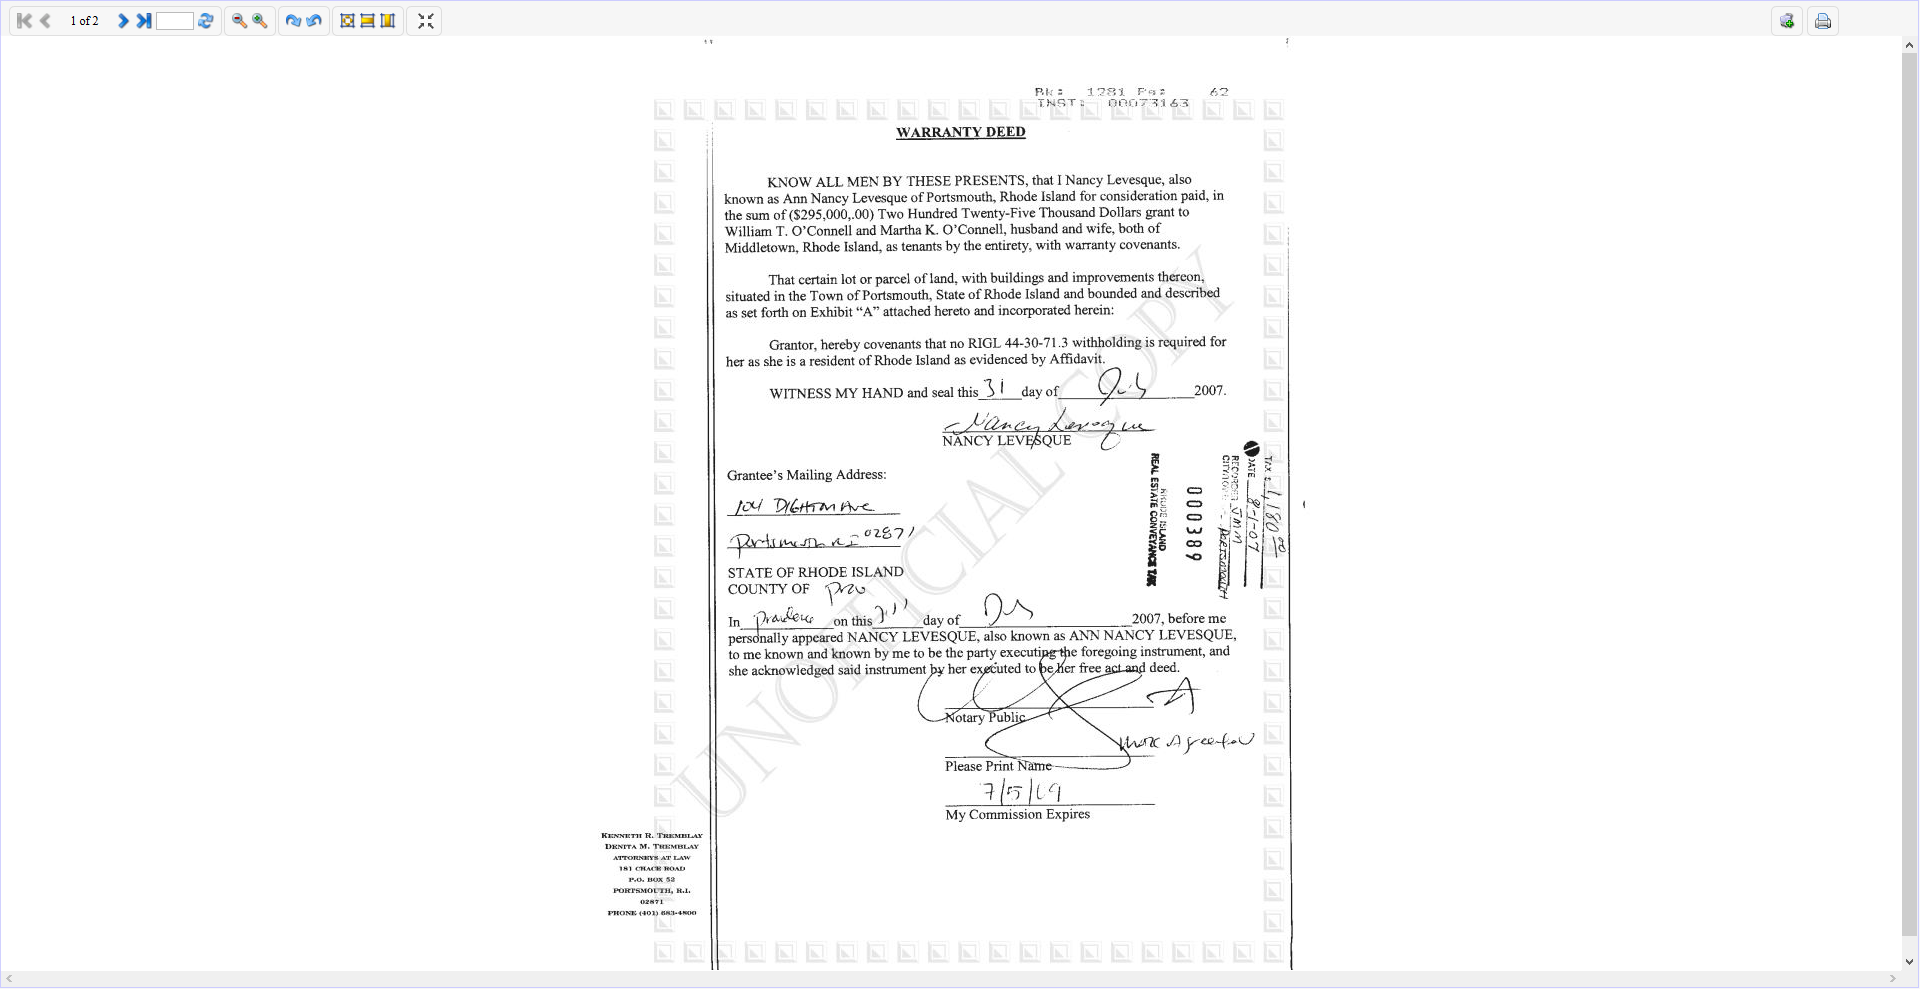 1 of 2
Bk: 1281 Pg: 62
INST: 00073163
WARRANTY DEED
KNOW ALL MEN BY THESE PRESENTS, that I Nancy Levesque, also
known as Ann Nancy Levesque of Portsmouth, Rhode Island for consideration paid, in
the sum of ($295,000,.00) Two Hundred Twenty-Five Thousand Dollars grant to
William T. O'Connell and Martha K. O'Connell, husband and wife, both of
Middletown, Rhode Island, as tenants by the entirety, with warranty covenants.
That certain lot or parcel of land, with buildings and improvements thereon,
situated in the Town of Portsmouth, State of Rhode Island and bounded and described
as set forth on Exhibit “A” attached hereto and incorporated herein:
Grantor, hereby covenants that no RIGL 44-30-71.3 withholding is required for
her as she is a resident of Rhode Island as evidenced by Affidavit.
WITNESS MY HAND and seal this 31 day of July 2007.
Nancy Levesque
NANCY LEVESQUE
Grantee's Mailing Address:
104 DIGHTON Ave
Portsmouth RI 02871
STATE OF RHODE ISLAND
COUNTY OF Prov
In Providence on this 31 day of July 2007, before me
personally appeared NANCY LEVESQUE, also known as ANN NANCY LEVESQUE,
to me known and known by me to be the party executing the foregoing instrument, and
she acknowledged said instrument by her executed to be her free act and deed.
Notary Public
Marc A Greenfield
Please Print Name
7/5/09
My Commission Expires
TAX $ 1,180.00
DATE 8-1-07
RECORDER JMM
CITY/TOWN PORTSMOUTH
000389
RHODE ISLAND
REAL ESTATE CONVEYANCE TAX
KENNETH R. TREMBLAY
DENITA M. TREMBLAY
ATTORNEYS AT LAW
181 CHACE ROAD
P.O. BOX 52
PORTSMOUTH, R.I.
02871
PHONE (401) 683-4800
UNOFFICIAL COPY